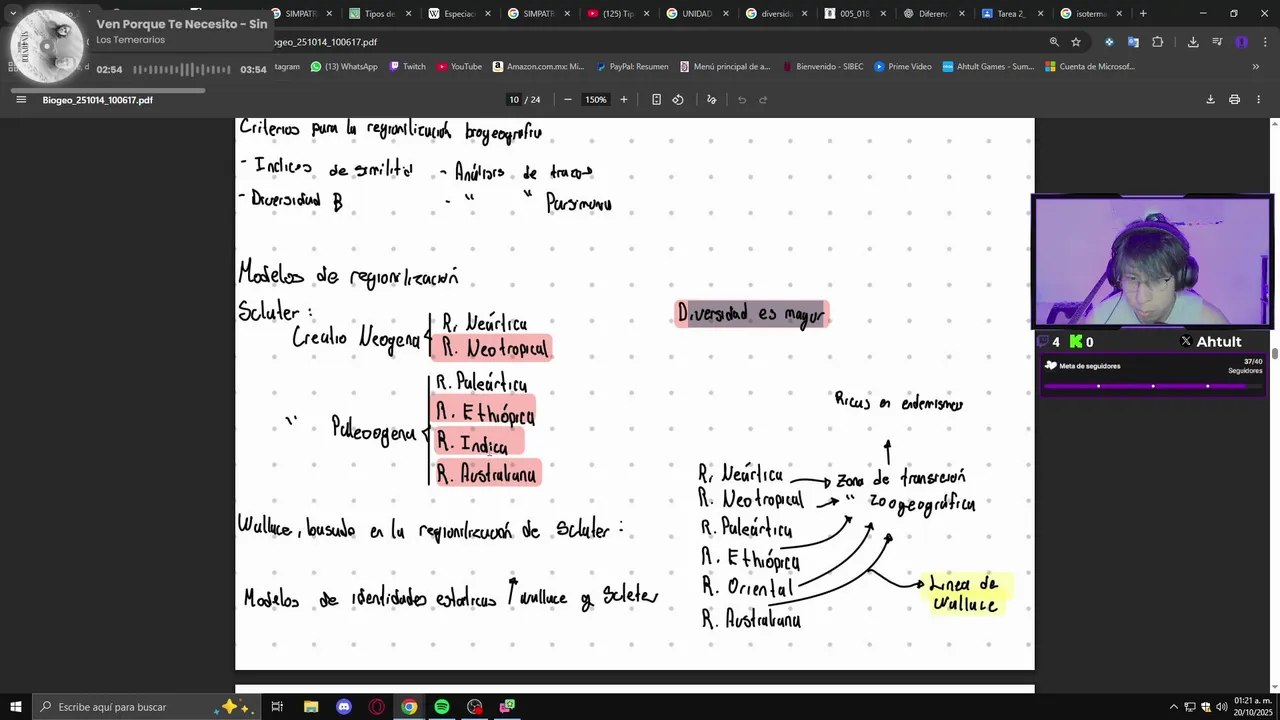 SIMPATR
Tipos de
Especiac
SIMPATR
(125) Tip
UNIDAD
diversida
005_018
Diferenc
Tarea 2_
isoterma
Ven Porque Te Necesito - Sin
Los Temerarios
02:54
03:54
Biogeo_251014_100617.pdf
tagram
(13) WhatsApp
Twitch
YouTube
Amazon.com.mx: Mi...
PayPal: Resumen
Menú principal de a...
Bienvenido - SIBEC
Prime Video
Ahtult Games - Sum...
Cuenta de Microsof...
Biogeo_251014_100617.pdf
10 / 24
150%
Criterios para la regionilización biogeografiu
- Indices de similitud - Análisis de trazos
- Diversidad B - " " Parsimoniu
Modelos de regionilización
Scluter :
Creatio Neogena
R. Neártica
R. Neotropical
" Paleogena
R. Paleártica
R. Ethiópica
R. Indica
R. Australiana
Diversidad es mayor
Ricus en endemismos
R. Neártica
Zona de transición
R. Neotropical
" Zoogeográfica
R. Paleártica
R. Ethiópica
R. Oriental
R. Australiana
Linea de
Walluce
Walluce, basudo en la regionilización de Scluter :
Modelos de identidades estaticas / walluce y Scleter
4
0
Ahtult
Meta de seguidores
37/40
Seguidores
Escribe aquí para buscar
01:21 a. m.
20/10/2025